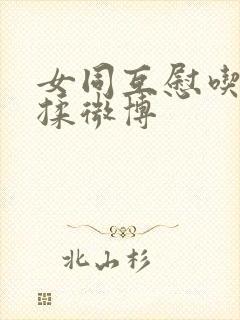 女同互慰喫
揉微博
北山杉